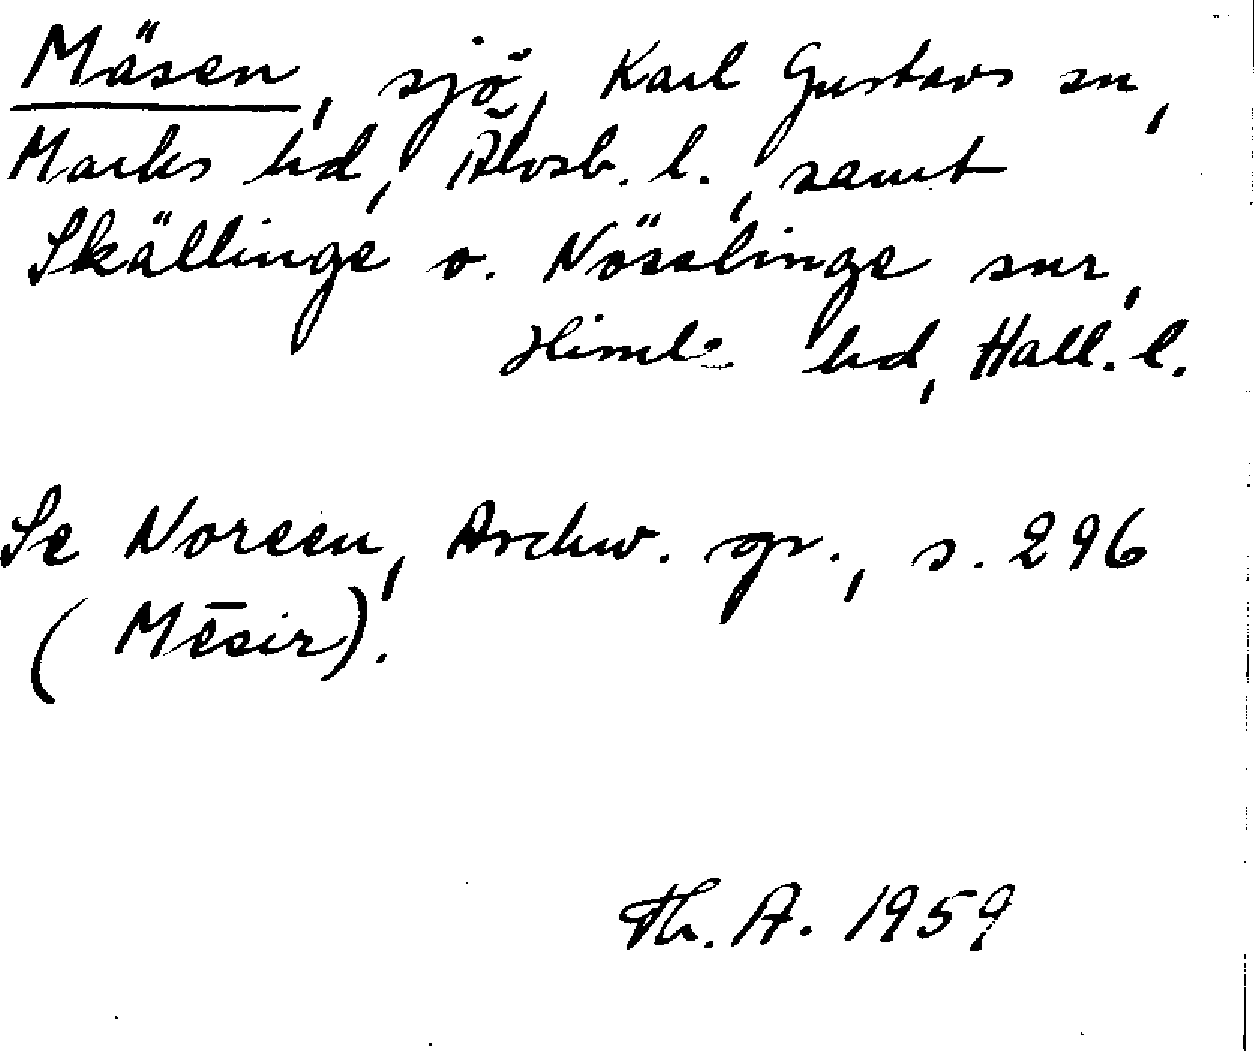 Mäsen, sjö, Karl Gustavs sn,
Marks hd, Älvsb. l., samt
Skällinge o. Nösslinge snr,
Himle hd, Hall. l.
Se Noreen, Archw. gr., s. 296
(Mēsir).
Th. A. 1959